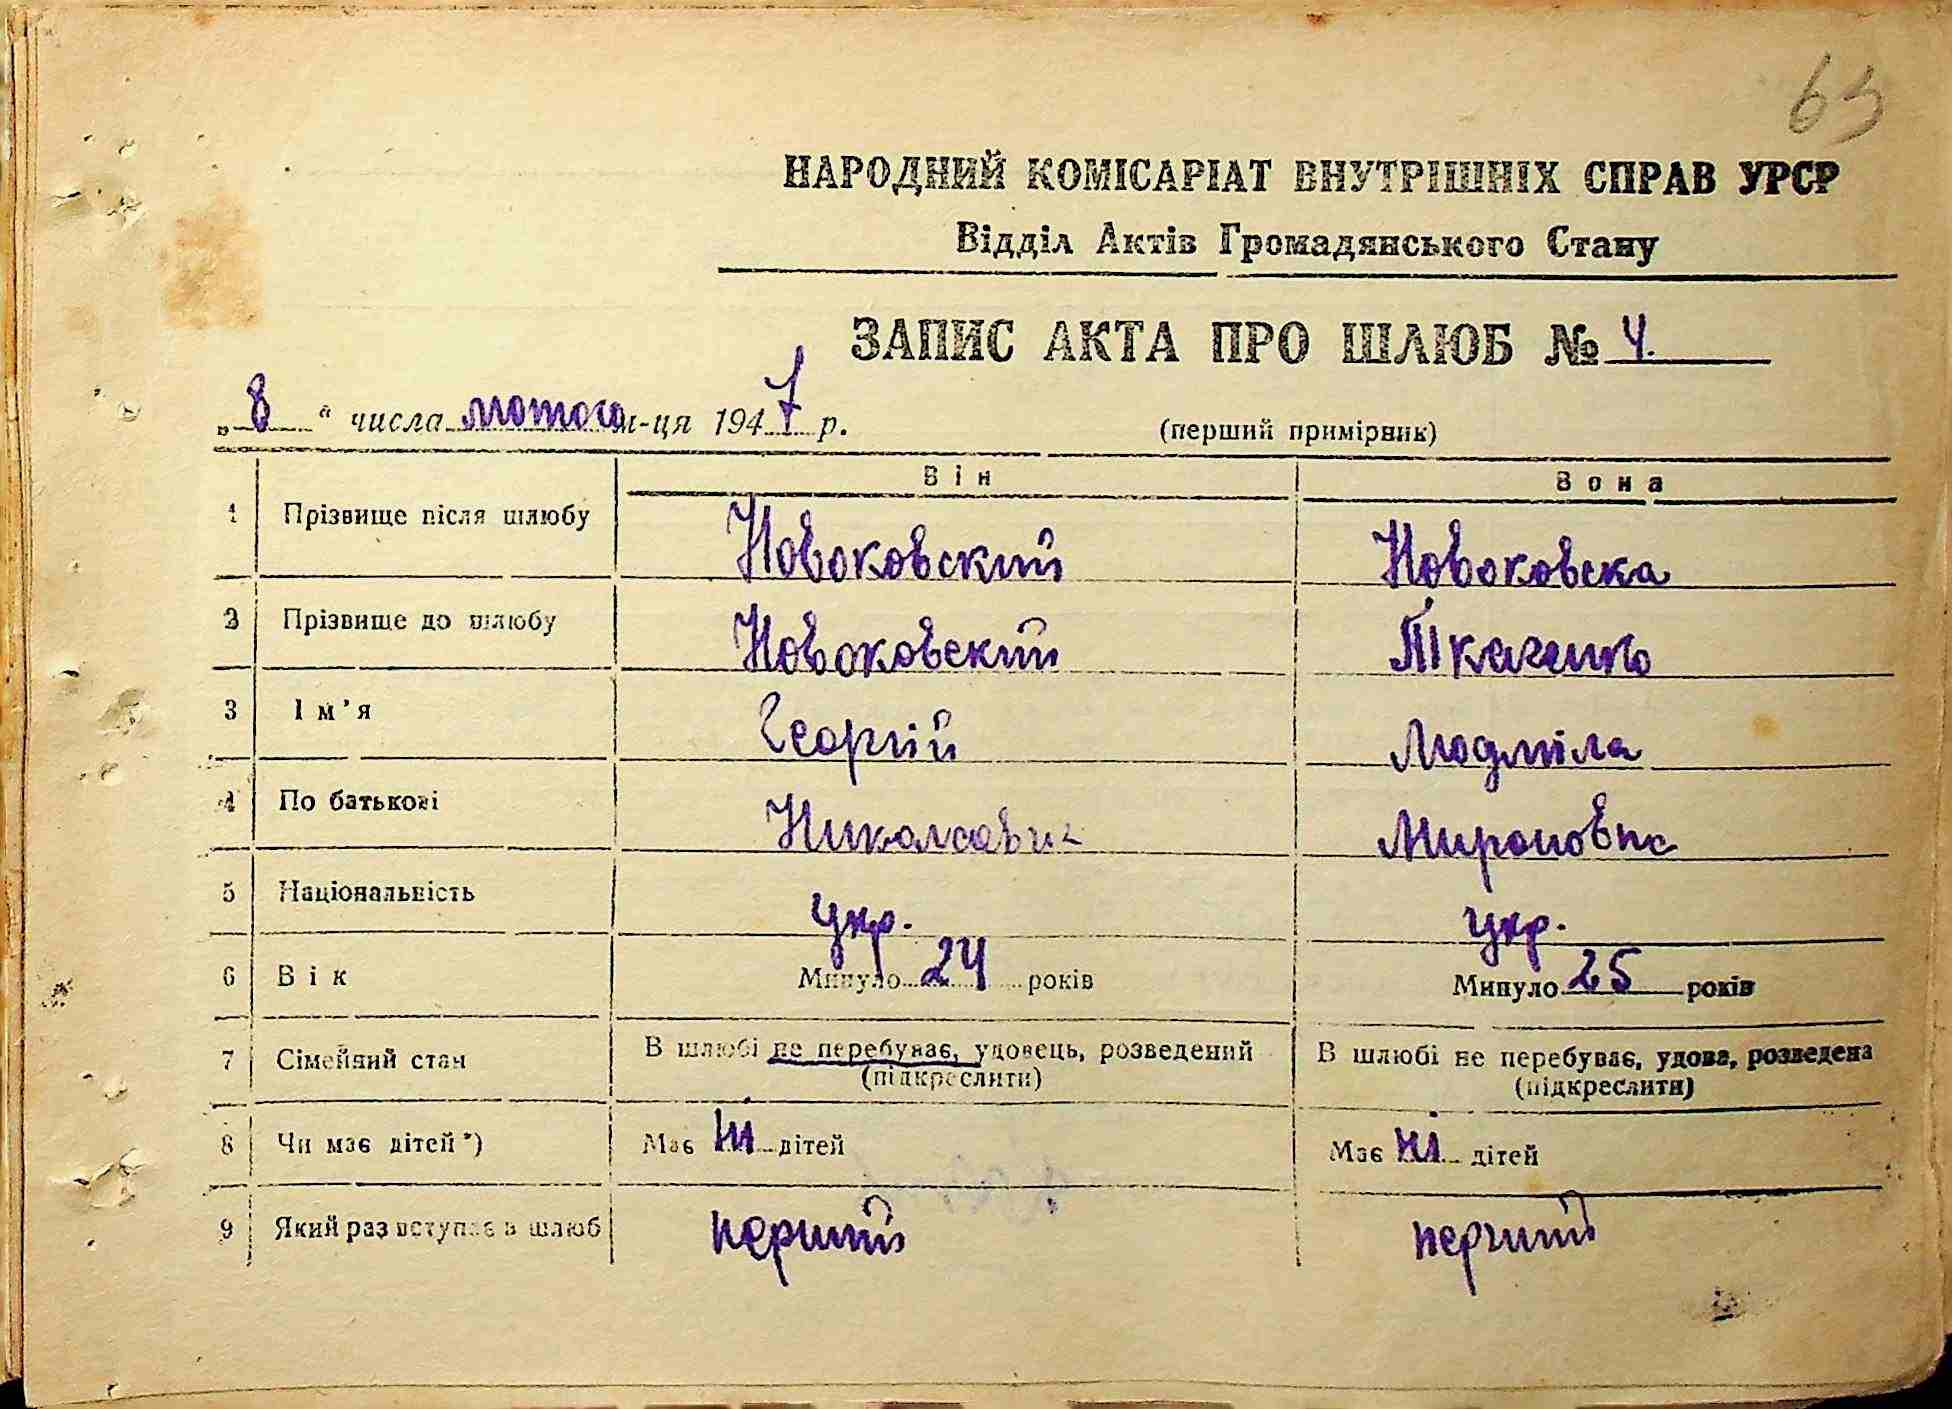 63
НАРОДНИЙ КОМІСАРІАТ ВНУТРІШНІХ СПРАВ УРСР
Відділ Актів Громадянського Стану
ЗАПИС АКТА ПРО ШЛЮБ № 4.
„8“ числа лютого м-ця 1947 р. (перший примірник)
Він Вона
1 Прізвище після шлюбу Новоковский Новоковска
2 Прізвище до шлюбу Новоковский Ткаченко
3 Ім'я Георгій Людміла
4 По батькові Николаевич Мироновна
5 Національність укр. укр.
6 Вік Минуло 24 років Минуло 25 років
7 Сімейний стан В шлюбі не перебуває, удовець, розведений В шлюбі не перебуває, удова, розведена
(підкреслити) (підкреслити)
8 Чи має дітей*) Має ні дітей Має ні дітей
9 Який раз вступає в шлюб перший перший